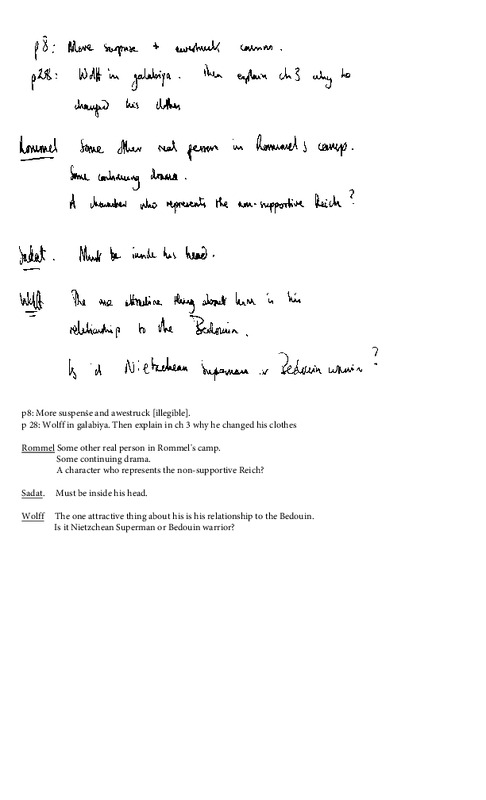 p8: More suspense + awestruck
p28: Wolff in galabiya. Then explain ch 3 why he
changed his clothes
Rommel Some other real person in Rommel's camp.
Some continuing drama.
A character who represents the non-supportive Reich?
Sadat. Must be inside his head.
Wolff The one attractive thing about him is his
relationship to the Bedouin.
Is it Nietzchean Superman or Bedouin warrior?
p8: More suspense and awestruck [illegible].
p 28: Wolff in galabiya. Then explain in ch 3 why he changed his clothes
Rommel Some other real person in Rommel's camp.
Some continuing drama.
A character who represents the non-supportive Reich?
Sadat. Must be inside his head.
Wolff The one attractive thing about his is his relationship to the Bedouin.
Is it Nietzchean Superman or Bedouin warrior?